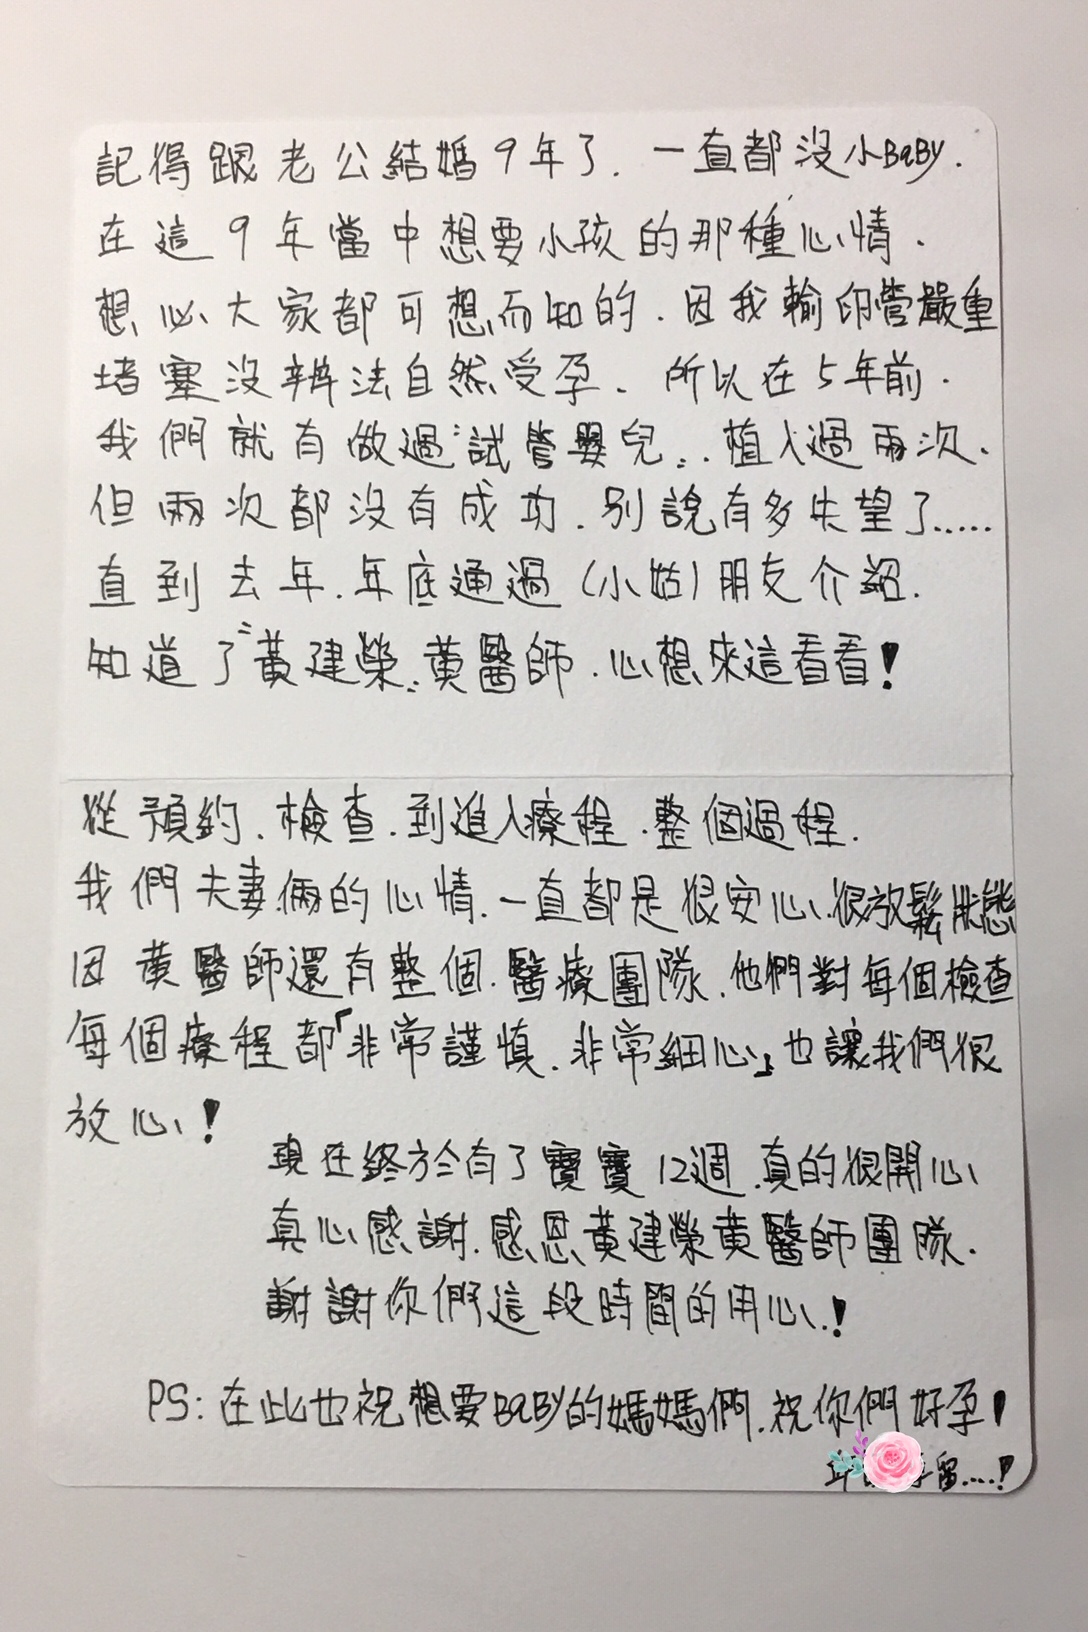 記得跟老公結婚9年了．一直都沒小BaBy．
在這9年當中想要小孩的那種心情．
想必大家都可想而知的．因我輸卵管嚴重
堵塞沒辨法自然受孕．所以在5年前．
我們就有做過〝試管嬰兒〞．植入過兩次．
但兩次都沒有成功．別說有多失望了.....
直到去年．年底通過(小姑)朋友介紹．
知道了〝黃建榮〞黃醫師．心想來這看看！
從預約．檢查．到進入療程．整個過程．
我們夫妻倆的心情．一直都是很安心．很放鬆狀態
因黃醫師還有整個．醫療團隊．他們對每個檢查
每個療程都「非常謹慎．非常細心」也讓我們很
放心！
現在終於有了寶寶12週．真的很開心
真心感謝．感恩黃建榮黃醫師團隊．
謝謝你們這段時間的用心．！
PS:在此也祝想要BaBy的媽媽們．祝你們好孕！
邱 留....！